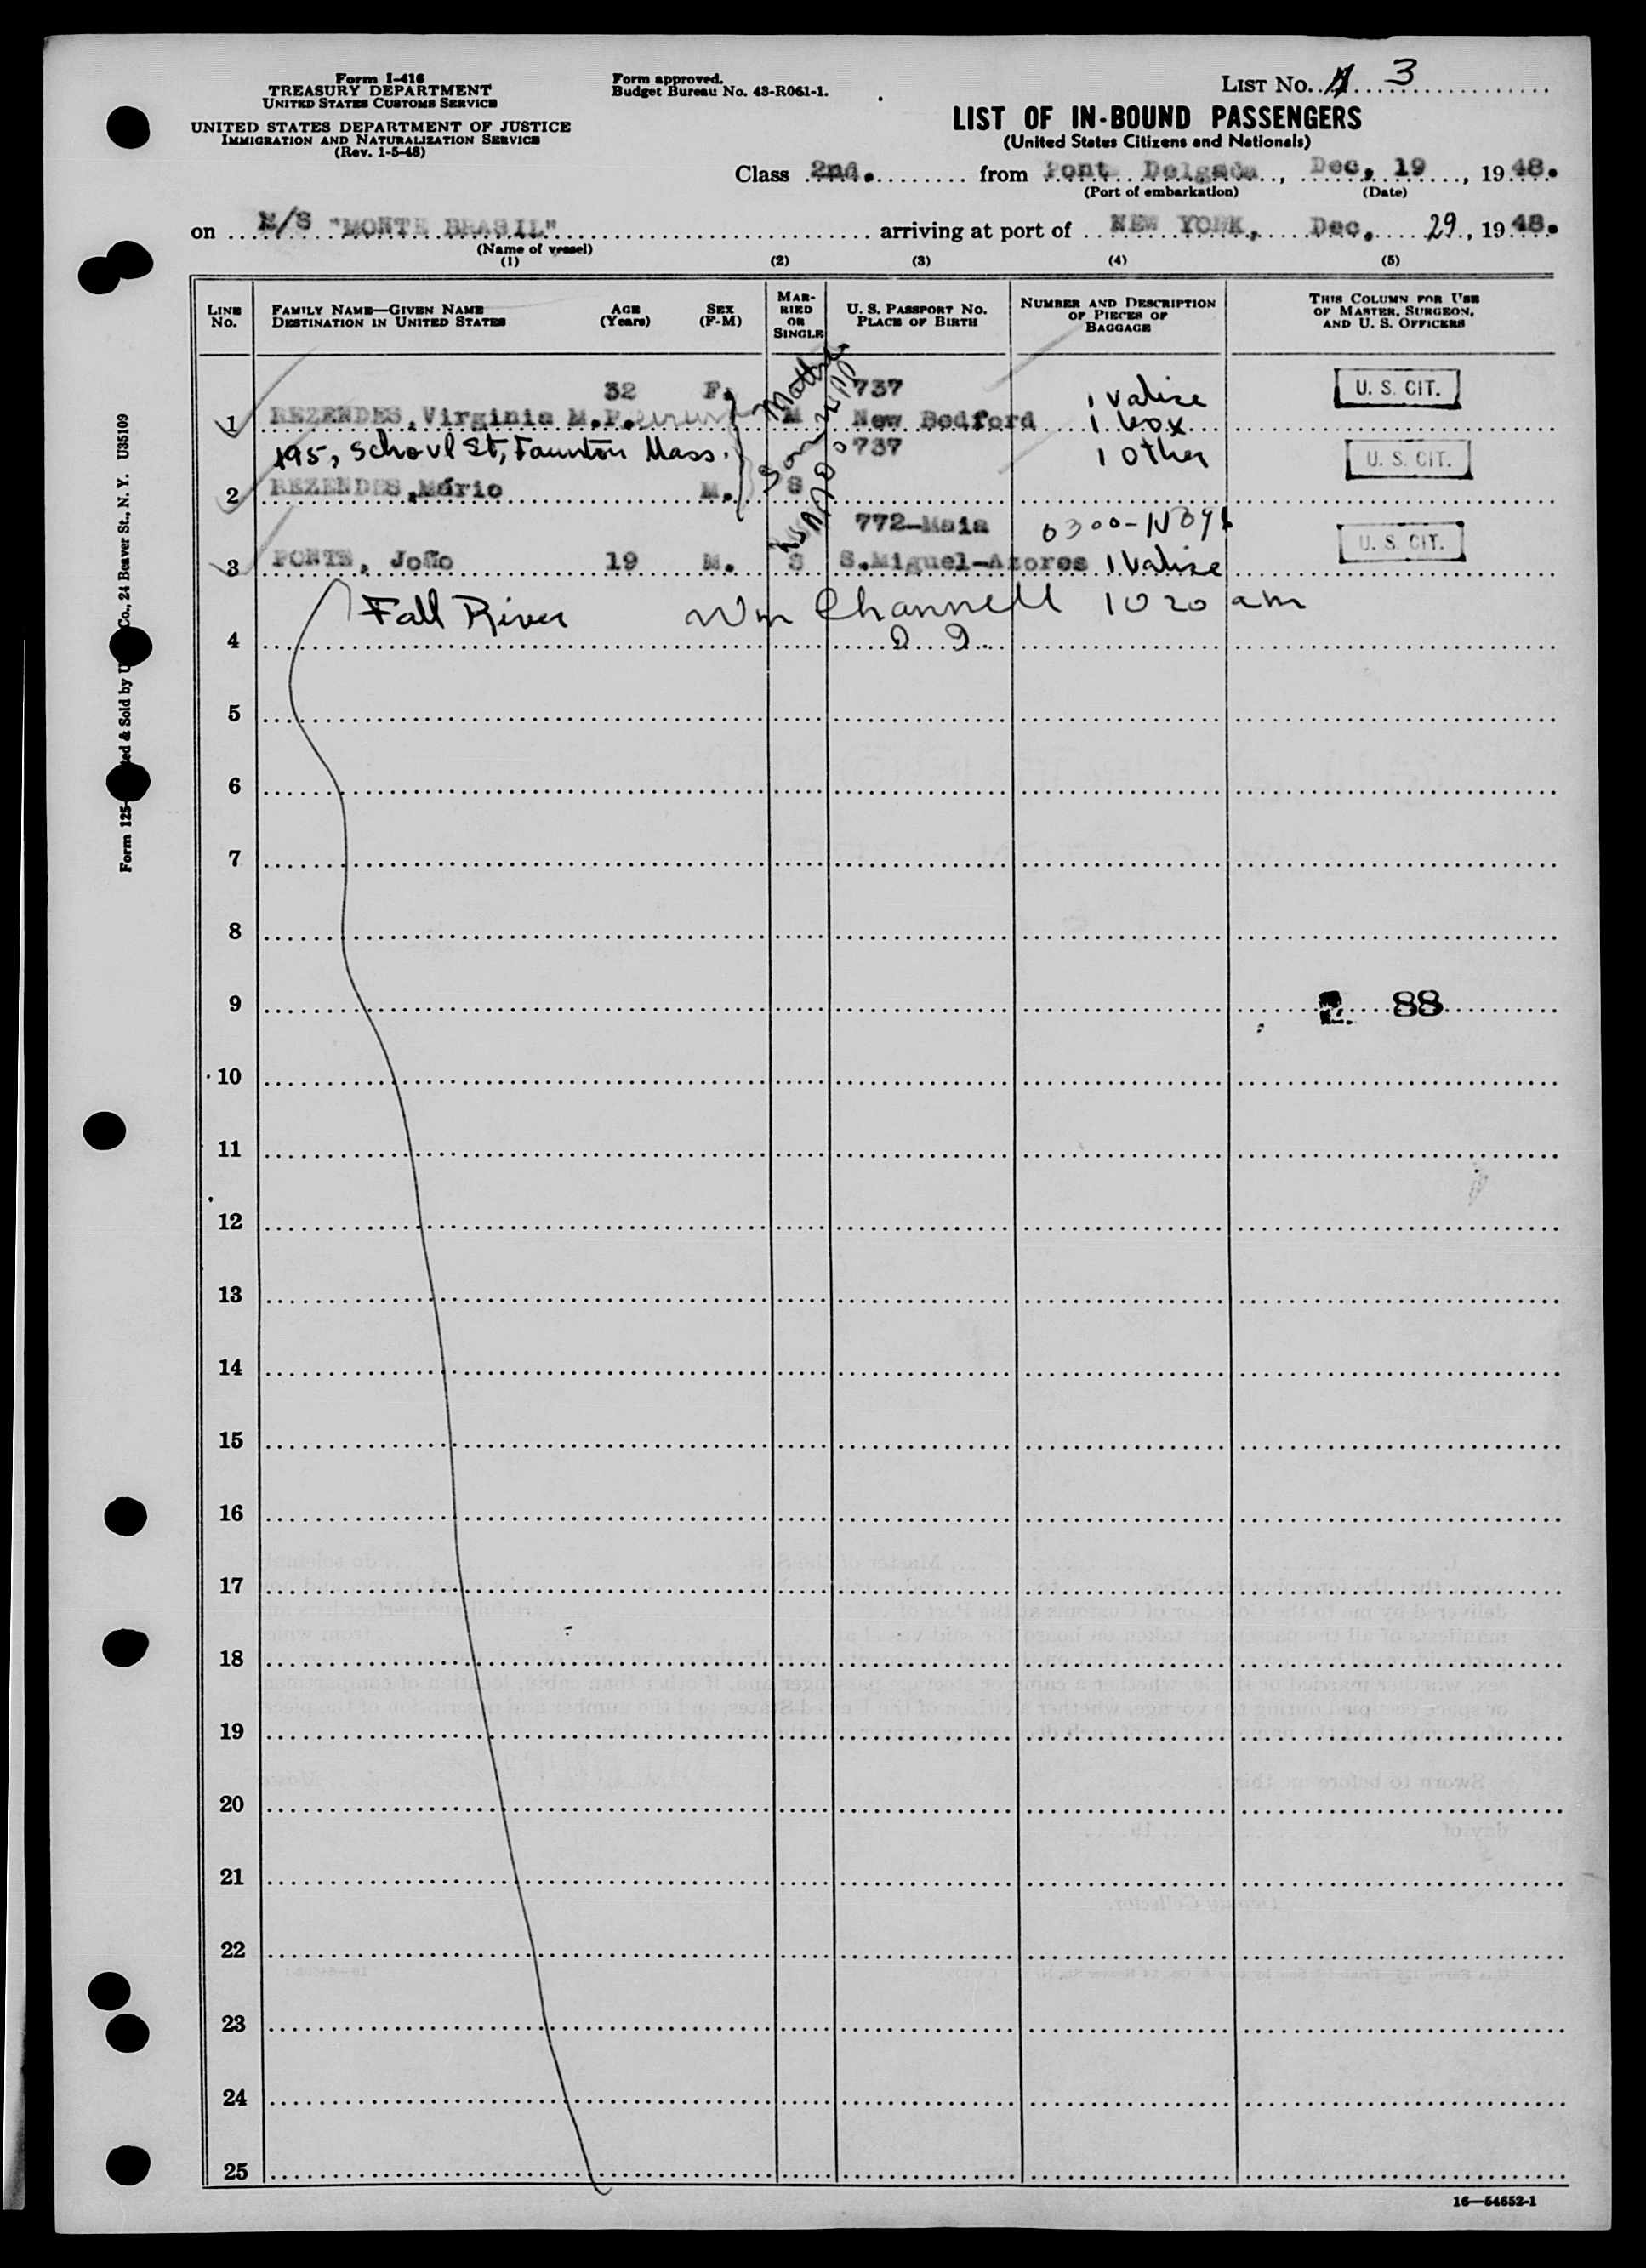 Form I-416
TREASURY DEPARTMENT
UNITED STATES CUSTOMS SERVICE
UNITED STATES DEPARTMENT OF JUSTICE
IMMIGRATION AND NATURALIZATION SERVICE
(Rev. 1-5-48)
Form approved.
Budget Bureau No. 43-R061-1.
LIST No. 3
LIST OF IN-BOUND PASSENGERS
(United States Citizens and Nationals)
Class 2nd. from Ponta Delgada, Dec. 19, 1948.
(Port of embarkation) (Date)
on M/S "MONTE BRASIL" arriving at port of NEW YORK, Dec. 29, 1948.
(Name of vessel)
(1) (2) (3) (4) (5)
LINE No. FAMILY NAME—GIVEN NAME DESTINATION IN UNITED STATES AGE (Years) SEX (F-M) MARRIED OR SINGLE U. S. PASSPORT No. PLACE OF BIRTH NUMBER AND DESCRIPTION OF PIECES OF BAGGAGE THIS COLUMN FOR USE OF MASTER, SURGEON, AND U. S. OFFICERS
32 F. 737 1 Valise U. S. CIT.
1 REZENDES, Virginia M.P. M New Bedford 1 box
195, School St, Taunton Mass. 737 1 other U. S. CIT.
Mother
Son
2 REZENDES, Mário M. S
772-Maia 0300- U. S. CIT.
3 PONTE, João 19 M. S S.Miguel-Azores 1 Valise
Fall River Wm Channell 10 20 am
4
5
6
7
8
9 88
10
11
12
13
14
15
16
17
18
19
20
21
22
23
24
25
16—54652-1
Form 125- ted & Sold by U Co., 24 Beaver St., N. Y. U35109